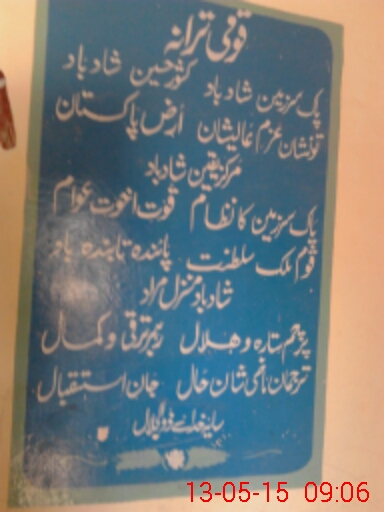 قومی ترانہ
پاک سرزمین شاد باد کشور حسین شاد باد
تو نشان عزم عالیشان ارض پاکستان
مرکز یقین شاد باد
پاک سرزمین کا نظام قوت اخوت عوام
قوم ملک سلطنت پائندہ تابندہ باد
شاد باد منزل مراد
پرچم ستارہ و ہلال رہبر ترقی و کمال
ترجمان ماضی شان حال جان استقبال
سایہ خدائے ذوالجلال
13-05-15 09:06